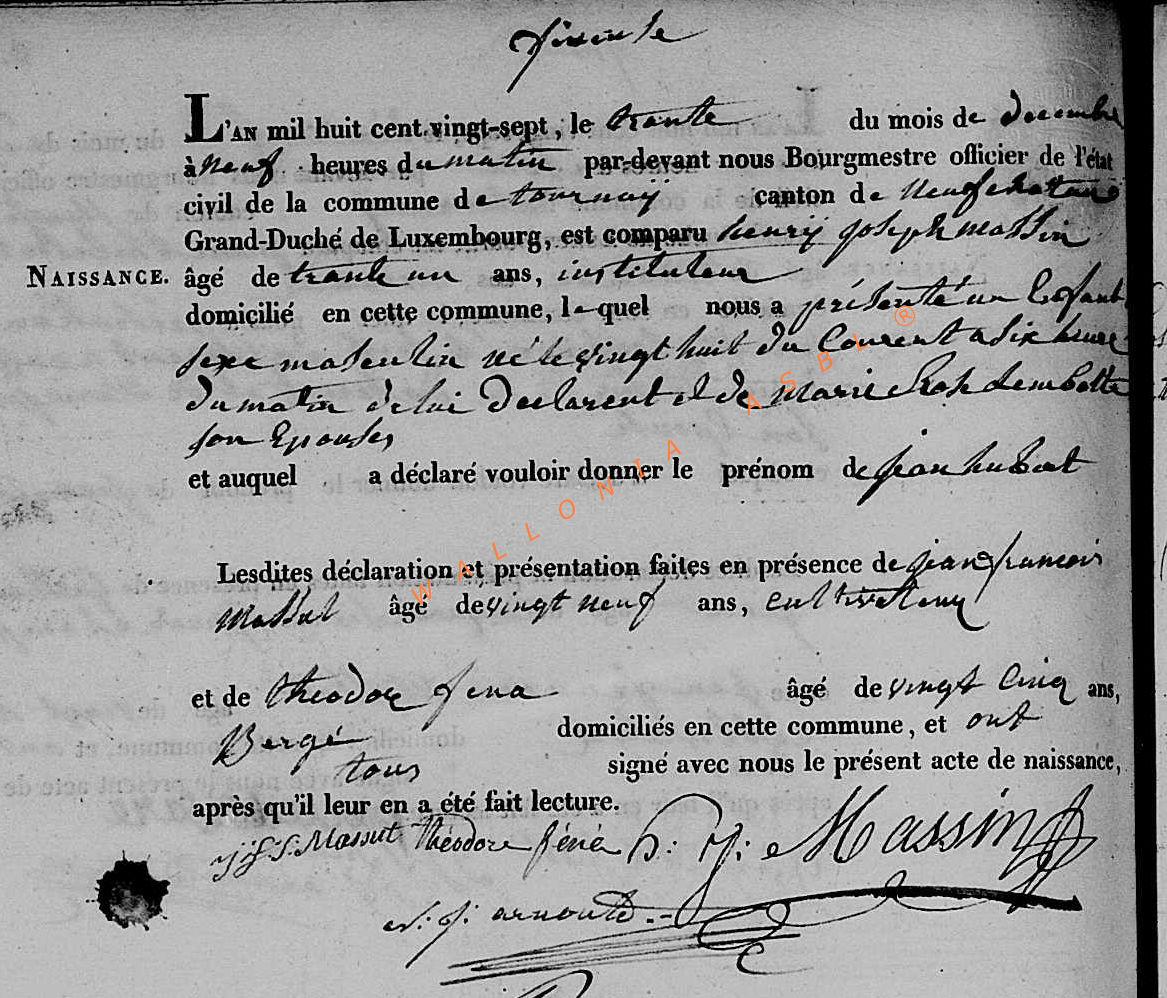 L'AN mil huit cent vingt-sept, le trante du mois de decembre
à neuf heures du matin par-devant nous Bourgmestre officier de l'état
civil de la commune de tournaÿ canton de Neufchataux
Grand-Duché de Luxembourg, est comparu henrÿ joseph massin
NAISSANCE. âgé de trante un ans, instituteur
domicilié en cette commune, le quel nous a présenté un Enfant
sexe masculin né le vingt huit du Courent a six heure
du matin de lui Declarent et de marie Rose Lambotte
son Epouse,
et auquel a déclaré vouloir donner le prénom de jean hubert
Lesdites déclaration et présentation faites en présence de jean francois
massut âgé de vingt neuf ans, cultivateur
et de theodore fena âgé de vingt Cinq ans,
Bergé domiciliés en cette commune, et ont
tous signé avec nous le présent acte de naissance,
après qu'il leur en a été fait lecture.
Massut Théodore féné h: j: Massin
arnould
WALLONIA ASBL ®